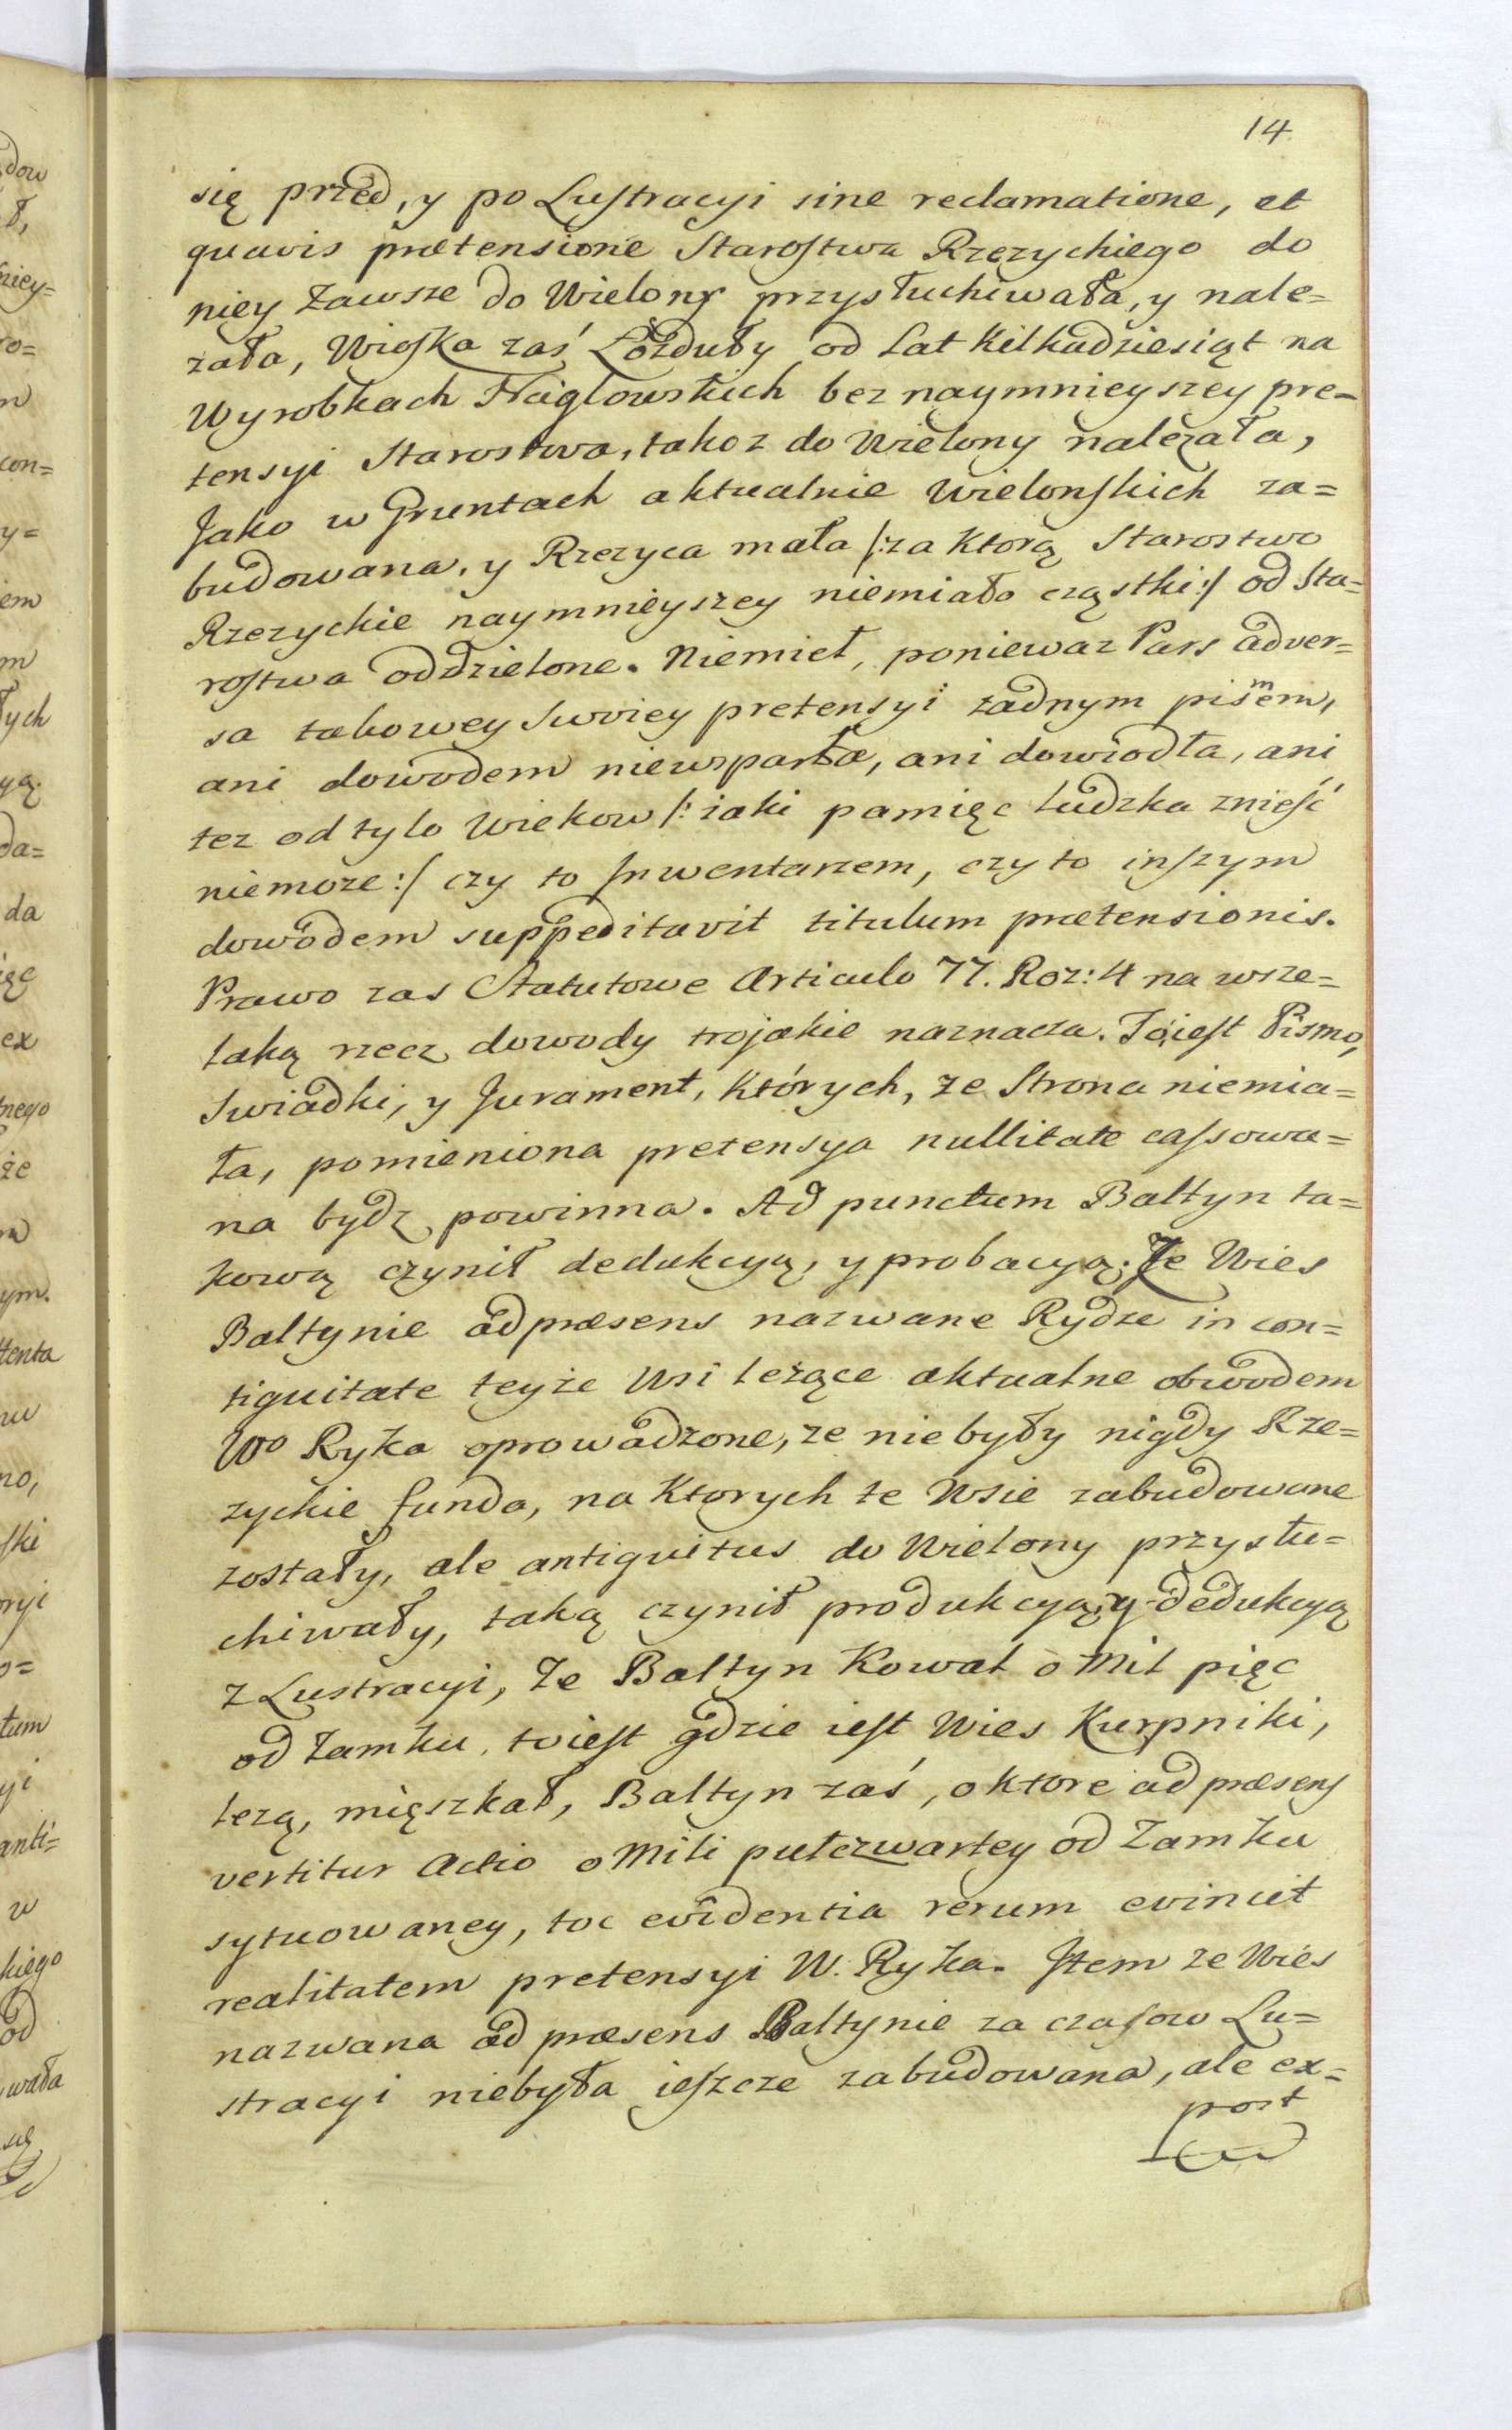 14
się przed, y po Lustracyi sine reclamatione, et
quavis prætensione Starostwa Rzezychiego do
niey zawsze do Wielony przysłuchiwała, y nale=
zała, Wioska zaś Łozduły od lat kilkadziesiąt na
Wyrobkach Naglowskich bez naymnieyszey pre=
tensyi Starostwa, takoz do Wielony nalezała,
Jako w Gruntach aktualnie Wielonskich za=
budowana, y Rzezyca mała /:za ktorą Starostwo
Rzezyckie naymnieyszey niemiało cząstki:/ od Sta=
rostwa oddzielone. Niemiet, poniewaz Pars adver=
sa takowey Swoiey pretensyi zadnym pismem,
ani dowodem niewsparła, ani dowiodła, ani
tez od tylo Wiekow /: iaki pamięc ludzka znieść
niemoze:/ czy to Inwentarzem, czy to inszym
dowodem suppeditavit titulum prætensionis.
Prawo zas Statutowe Articulo 77. Roz: 4 na wsze=
laką rzecz dowody trojakie naznacza. To iest Pismo,
Swiadki, y Jurament, których, ze Strona niemia=
ła, pomieniona pretensya nullitate cassowa=
na bydz powinna. Ad punctum Baltyn ta=
kową czynił dedukcyą, y probacyą; Ze Wies
Baltynie ad præsens nazwane Rydze in con=
tiguitate teyże Wsi leżące aktualne obwodem
Wo Ryka oprowadzone, ze nie były nigdy Rze=
zyckie funda, na ktorych te Wsie zabudowane
zostały, ale antiquitus do Wielony przysłu=
chiwały, taką czynił produkcyą, y dedukcyą
z Lustracyi, Ze Baltyn Kowal o Mil pięc
od Zamku, to iest gdzie iest Wies Kurpniki,
lezą, mięszkał, Baltyn zaś, o ktore ad præsens
vertitur Actio o Mili pułczwartey od Zamku
sytuowaney, toc evidentia rerum evincit
realitatem pretensyi W. Ryka. Item ze Wies
nazwana ad præsens Baltynie za czasow Lu=
stracyi niebyła ieszcze zabudowana, ale ex=
post